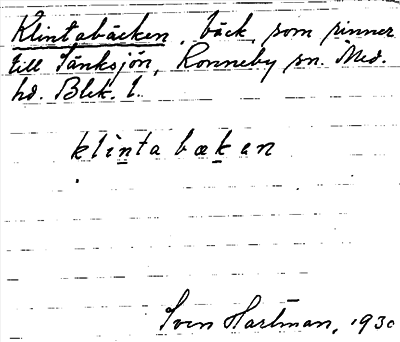 Klintabäcken, bäck, som rinner
till Sänksjön, Ronneby sn. Med.
hd. Blek. l.
klinta bækan
Sven Hartman, 1930